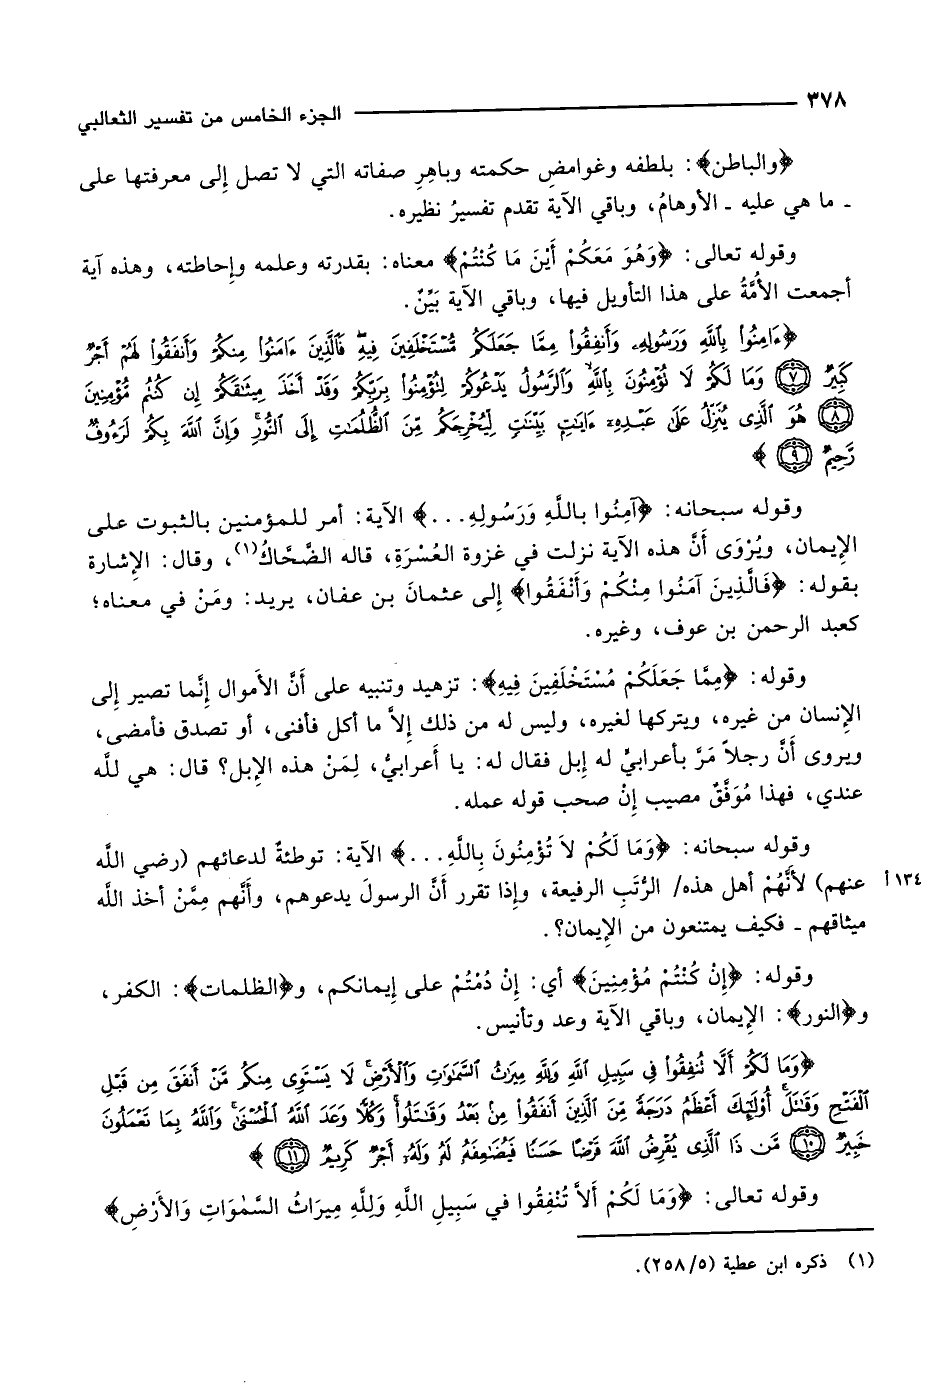 ٣٧٨ الجزء الخامس من تفسير الثعالبي
﴿والباطن﴾: بلطفه وغوامضِ حكمته وباهِرِ صفاته التي لا تصل إلى معرفتها على
- ما هي عليه - الأوهامُ، وباقي الآية تقدم تفسيرُ نظيره.
وقوله تعالى: ﴿وَهُوَ مَعَكُمْ أَيْنَ مَا كُنْتُمْ﴾ معناه: بقدرته وعلمه وإحاطته، وهذه آية
أجمعت الأُمَّةُ على هذا التأويل فيها، وباقي الآية بَيِّنٌ.
﴿ءَامِنُوا۟ بِٱللَّهِ وَرَسُولِهِۦ وَأَنفِقُوا۟ مِمَّا جَعَلَكُم مُّسْتَخْلَفِينَ فِيهِ ۖ فَٱلَّذِينَ ءَامَنُوا۟ مِنكُمْ وَأَنفَقُوا۟ لَهُمْ أَجْرٌ
كَبِيرٌ ﴿٧﴾ وَمَا لَكُمْ لَا تُؤْمِنُونَ بِٱللَّهِ ۙ وَٱلرَّسُولُ يَدْعُوكُمْ لِتُؤْمِنُوا۟ بِرَبِّكُمْ وَقَدْ أَخَذَ مِيثَٰقَكُمْ إِن كُنتُم مُّؤْمِنِينَ
﴿٨﴾ هُوَ ٱلَّذِى يُنَزِّلُ عَلَىٰ عَبْدِهِۦٓ ءَايَٰتٍۭ بَيِّنَٰتٍ لِّيُخْرِجَكُم مِّنَ ٱلظُّلُمَٰتِ إِلَى ٱلنُّورِ ۚ وَإِنَّ ٱللَّهَ بِكُمْ لَرَءُوفٌ
رَّحِيمٌ ﴿٩﴾ ﴾
وقوله سبحانه: ﴿آمِنُوا بِاللَّهِ وَرَسُولِهِ...﴾ الآية: أمر للمؤمنين بالثبوت على
الإيمان، ويُرْوَى أَنَّ هذه الآية نزلت في غزوة العُسْرَةِ، قاله الضَّحَّاكُ(١)، وقال: الإشارة
بقوله: ﴿فَالَّذِينَ آمَنُوا مِنْكُمْ وَأَنْفَقُوا﴾ إلى عثمانَ بن عفان، يريد: ومَنْ في معناه؛
كعبد الرحمن بن عوف، وغيره.
وقوله: ﴿مِمَّا جَعَلَكُمْ مُسْتَخْلَفِينَ فِيهِ﴾: تزهيد وتنبيه على أَنَّ الأموال إنَّما تصير إلى
الإنسان من غيره، ويتركها لغيره، وليس له من ذلك إلاَّ ما أكل فأفنى، أو تصدق فأمضى،
ويروى أَنَّ رجلاً مَرَّ بأعرابيٍّ له إبل فقال له: يا أَعرابيُّ، لِمَنْ هذه الإبل؟ قال: هي للَّه
عندي، فهذا مُوَفَّقٌ مصيب إنْ صحب قوله عمله.
وقوله سبحانه: ﴿وَمَا لَكُمْ لاَ تُؤْمِنُونَ بِاللَّهِ...﴾ الآية: توطئةٌ لدعائهم (رضي اللَّه
عنهم) لأَنَّهُمْ أهل هذه/ الرُّتَبِ الرفيعة، وإذا تقرر أَنَّ الرسولَ يدعوهم، وأنَّهم مِمَّنْ أخذ اللَّه ١٣٤ أ
ميثاقهم - فكيف يمتنعون من الإيمان؟.
وقوله: ﴿إِنْ كُنْتُمْ مُؤْمِنِينَ﴾ أي: إنْ دُمْتُمْ على إيمانكم، و﴿الظلمات﴾: الكفر،
و﴿النور﴾: الإيمان، وباقي الآية وعد وتأنيس.
﴿وَمَا لَكُمْ أَلَّا تُنفِقُوا۟ فِى سَبِيلِ ٱللَّهِ وَلِلَّهِ مِيرَٰثُ ٱلسَّمَٰوَٰتِ وَٱلْأَرْضِ ۚ لَا يَسْتَوِى مِنكُم مَّنْ أَنفَقَ مِن قَبْلِ
ٱلْفَتْحِ وَقَٰتَلَ ۚ أُو۟لَٰٓئِكَ أَعْظَمُ دَرَجَةً مِّنَ ٱلَّذِينَ أَنفَقُوا۟ مِنۢ بَعْدُ وَقَٰتَلُوا۟ ۚ وَكُلًّا وَعَدَ ٱللَّهُ ٱلْحُسْنَىٰ ۚ وَٱللَّهُ بِمَا تَعْمَلُونَ
خَبِيرٌ ﴿١٠﴾ مَّن ذَا ٱلَّذِى يُقْرِضُ ٱللَّهَ قَرْضًا حَسَنًا فَيُضَٰعِفَهُۥ لَهُۥ وَلَهُۥٓ أَجْرٌ كَرِيمٌ ﴿١١﴾ ﴾
وقوله تعالى: ﴿وَمَا لَكُمْ أَلاَّ تُنْفِقُوا في سَبِيلِ اللَّهِ وَلِلَّهِ مِيرَاثُ السَّمٰوَاتِ وَالأَرْضِ﴾
(١) ذكره ابن عطية (٢٥٨/٥).